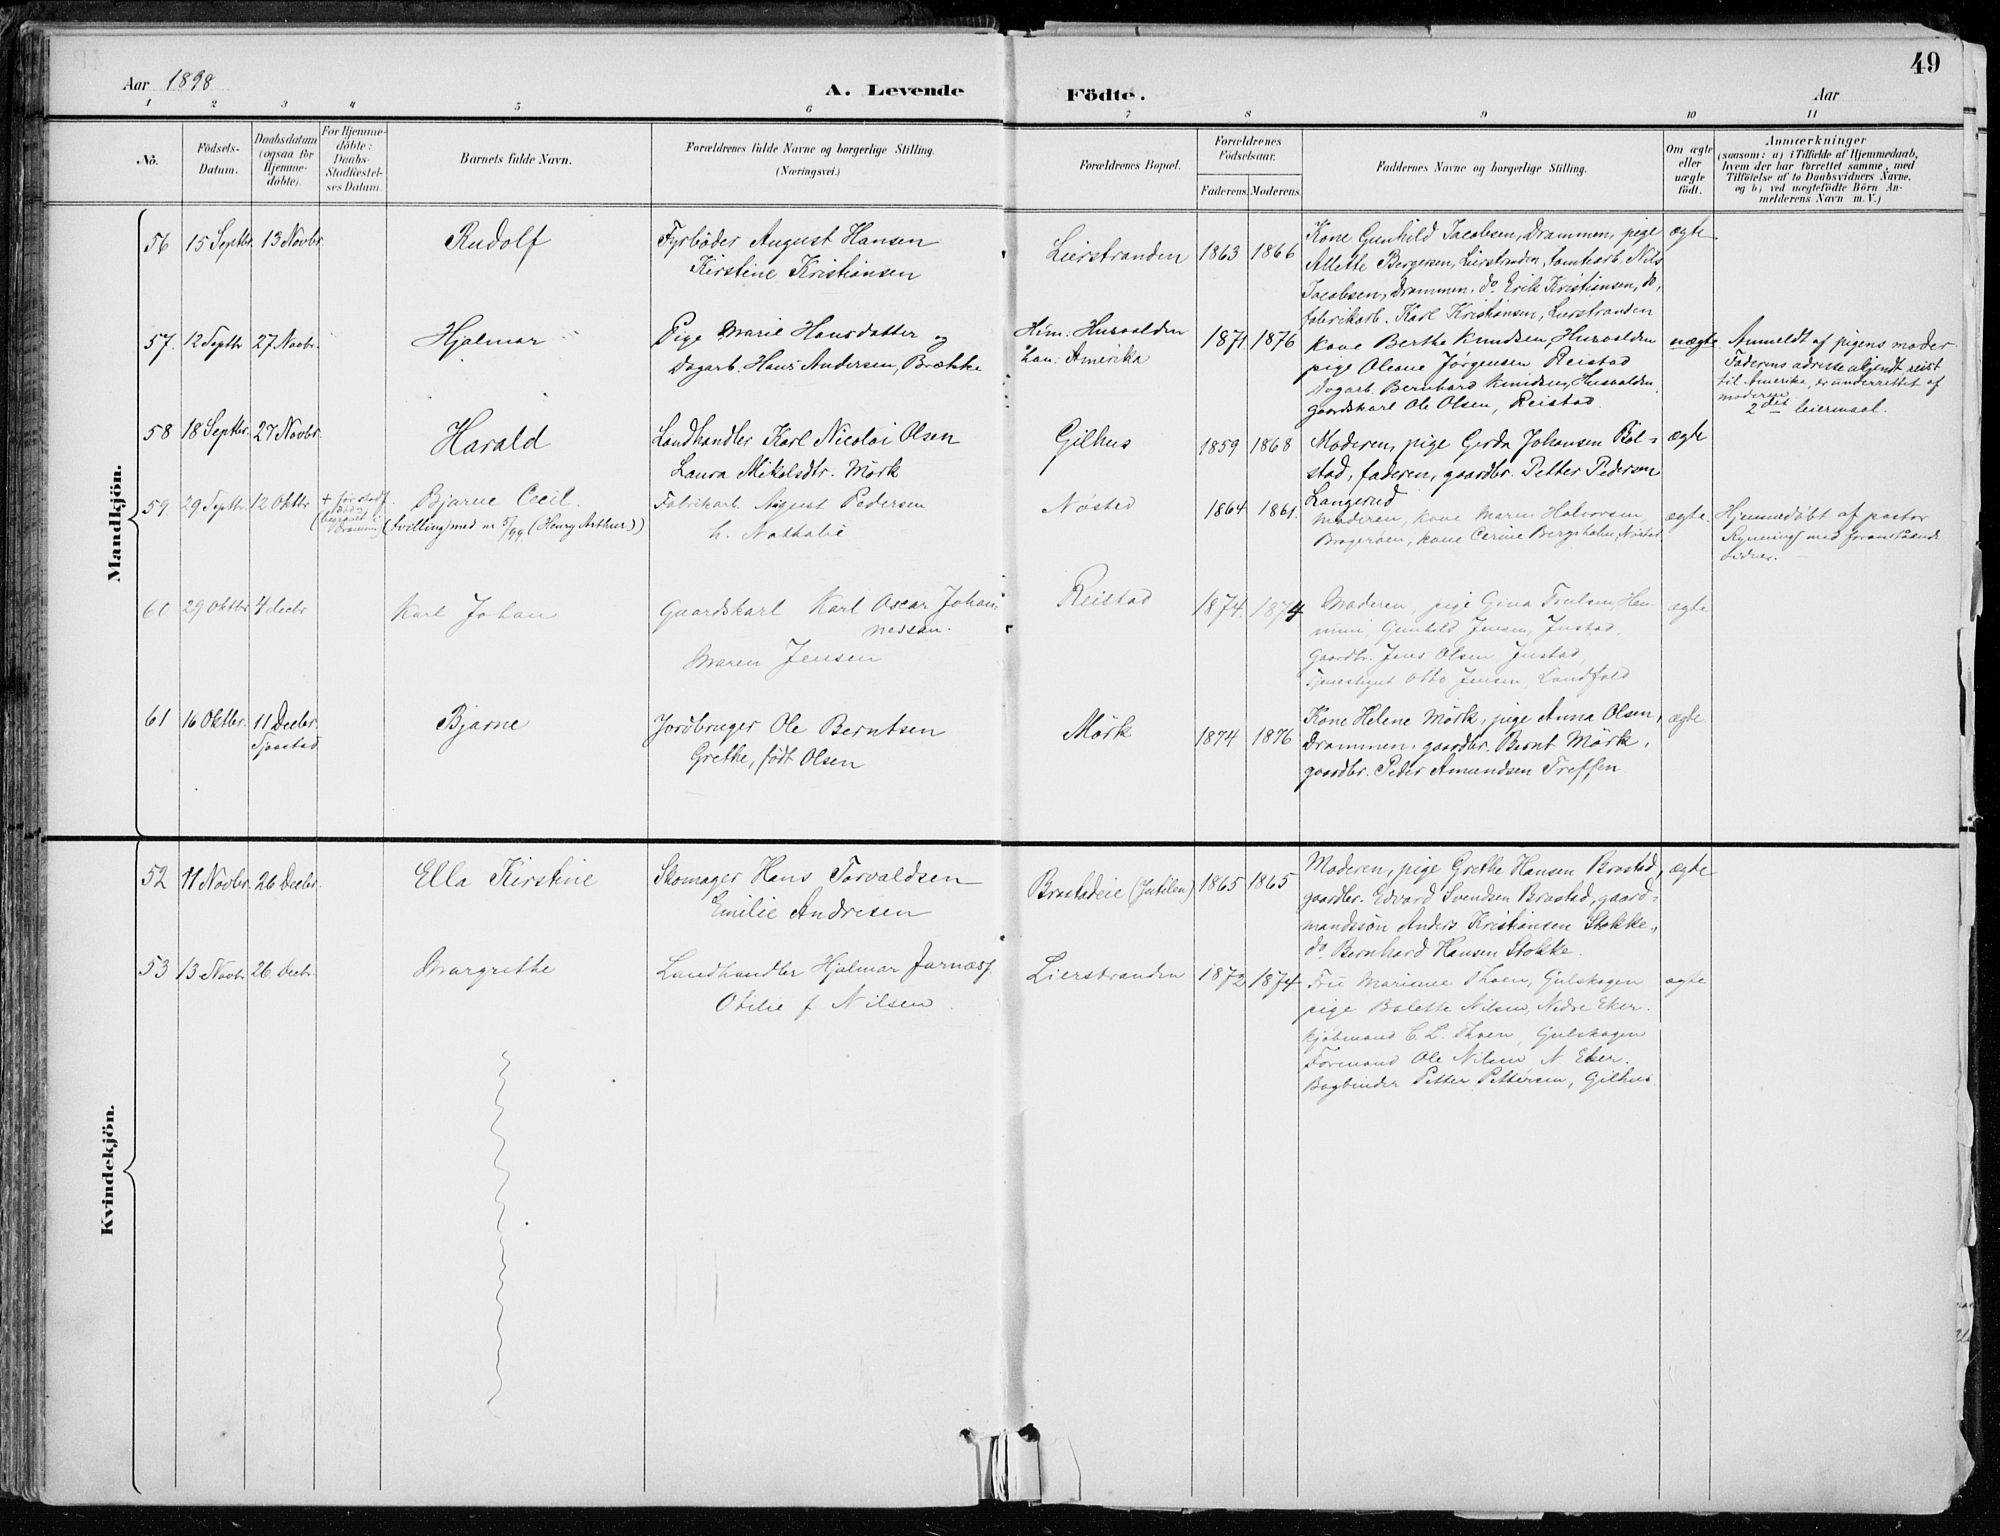 49
Aar 1898
A. Levende
Födte.
Aar
1 2 3 4 5 6 7 8 9 10 11
No.
Födsels-
Datum.
Daabsdatum
(ogsaa for
Hjemme-
döbte).
For Hjemme-
döbte:
Daabs-
Stadfæstel-
ses Datum.
Barnets fulde Navn.
Forældrenes fulde Navne og borgerlige Stilling.
(Næringsvei.)
Forældrenes Bopæl.
Forældrenes
Födselsaar.
Faderens. Moderens.
Faddernes Navne og borgerlige Stilling.
Om ægte
eller
uægte
födt.
Anmærkninger
(saasom: a) i Tilfælde af Hjemmedaab,
hvem der har forrettet samme, med
Tilföielse af to Daabsvidners Navne,
og b) ved uægtefödte Börn An-
melderens Navn m. V.)
Mandkjön.
56 15 Septbr. 13 Novbr.
Rudolf
Fyrböder August Hansen
Kirstine Kristiansen
Lierstranden
1863 1866
Kone Gunhild Jacobsen, Drammen, pige
Allette Bergersen, Lierstranden, tomtearb. Nils
Jacobsen, Drammen, do. Erik Kristiansen, do,
fabrikarb. Karl Kristiansen, Lierstranden
ægte
57. 12 Septbr 27 Novbr.
Hjalmar
Pige Marie Hansdatter og
Dagarb. Hans Andersen, Brække
Hun: Husvalden
han: Amerika
1871 1876
Kone Berthe Knudsen, Husvalden
pige Oleane Jørgensen Reistad
Dagarb. Bernhard Knudsen, Husvalden,
gaardskarl Ole Olsen, Reistad.
uægte
Anmeldt af pigens moder.
Faderens adresse ukjendt, reist
til Amerika, er underrettet af
moderen
2det leiermaal.
58 18 Septbr. 27 Novbr.
Harald
Landhandler Karl Nicolai Olsen
Laura Mikalsdtr. Mørk
Gilhus
1859 1868
Moderen, pige Gerda Johansen Bøl-
stad, faderen, gaardbr. Petter Pedersen
Langerud
ægte
59 29 Septbr. 12 Oktbr
+ før stadf.
Död
(begravet i
Drammen)
Bjarne Cecil.
(tvilling med nr. 5/99 (Henry Arthur))
Fabrikarb. August Pedersen
h. Nathalie
Nøsted
1864 1861.
Moderen, kone Maren Halvorsen
Bragerøen, kone Cerine Bergsholm, Nøsted
ægte.
Hjemmedøbt af pastor
Rynning med foranstaaende
vidner.
60 29 Oktbr 4 decbr
Karl Johan
Gaardskarl Karl Oscar Johan
nessen.
Maren Jensen
Reistad
1874. 1874
Moderen, pige Gina Trulsen, Hen-
num, Gunhild Jensen, Justad,
Gaardbr. Jens Olsen Justad,
Tjenestegut Otto Jensen, Landfald
ægte
61 16 Oktbr. 11 Decbr.
Sjaastad
Bjarne
Jordbruger Ole Berntsen
Grethe, født Olsen
Mørk
1874 1876
Kone Helene Mørk, pige Anna Olsen,
Drammen, gaardbr. Bernt Mørk,
gaardbr. Peder Amundsen Treffen
ægte
Kvindekjön.
52 11 Novbr. 26 Decbr.
Ella Kirstine
Skomager Hans Torvaldsen
Emilie Andresen
Brastadeie (Jutilen)
1865 1865
Moderen, pige Grethe Hansen Brastad,
gaardbr. Edvard Svendsen Brastad, gaard-
mandssøn Anders Kristiansen Stokke,
do Bernhard Hansen Stokke.
ægte
53 13 Novbr. 26 Decbr.
Margrethe
Landhandler Hjalmar Jarnæss
Otilie f Nilsen
Lierstranden
1872 1874
Fru Mariane Thoen, Gulskogen
pige Bolette Nilsen, Nedre Eker.
kjøbmand C. L. Thoen, Gulskogen
Formand Ole Nilsen N. Eker.
Bogbinder Petter Pettersen, Gilhus.
ægte